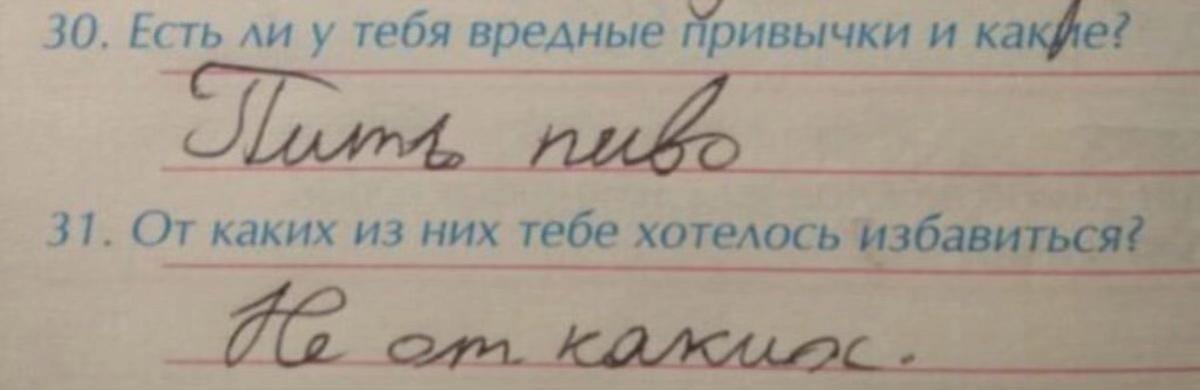 30. Есть ли у тебя вредные привычки и какие?
Пить пиво
31. От каких из них тебе хотелось избавиться?
Не от каких.